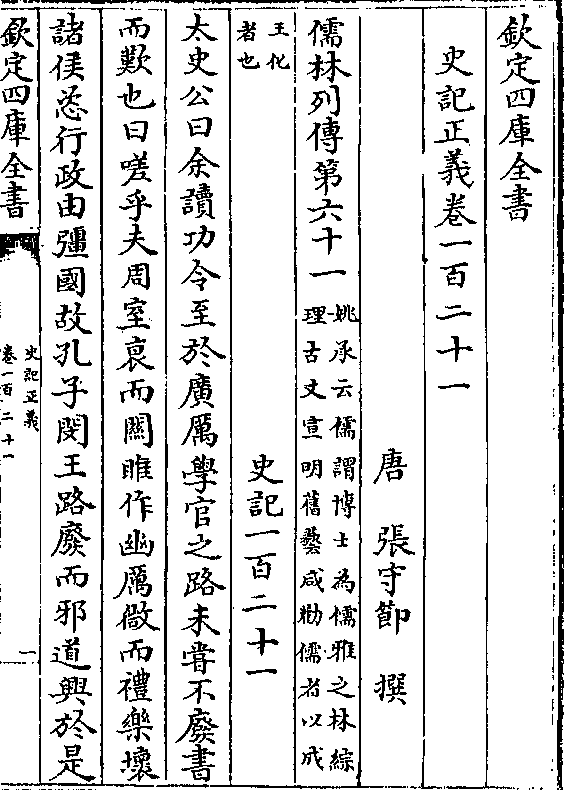 欽定四庫全書
史記正義卷一百二十一
唐 張守節 撰
儒林列傳第六十一
姚承云儒謂博士為儒雅之林綜
理古文宣明舊藝咸勸儒者以成
王化
者也
史記一百二十一
太史公曰余讀功令至於廣厲學官之路未嘗不廢書
而歎也曰嗟乎夫周室衰而關雎作幽厲微而禮樂壞
諸侯恣行政由彊國故孔子閔王路廢而邪道興於是
欽定四庫全書
史記正義
卷一百二十一
一